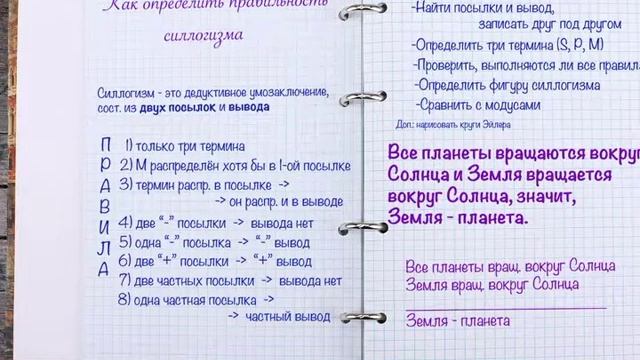 Как определить правильность
силлогизма
Силлогизм - это дедуктивное умозаключение,
сост. из двух посылок и вывода
ПРАВИЛА
1) только три термина
2) М распределён хотя бы в 1-ой посылке
3) термин распр. в посылке ->
-> он распр. и в выводе
4) две “-” посылки -> вывода нет
5) одна “-” посылка -> “-” вывод
6) две “+” посылки -> “+” вывод
7) две частных посылки -> вывода нет
8) одна частная посылка ->
-> частный вывод
-Найти посылки и вывод,
записать друг под другом
-Определить три термина (S, P, M)
-Проверить, выполняются ли все правил
-Определить фигуру силлогизма
-Сравнить с модусами
Доп.: нарисовать круги Эйлера
Все планеты вращаются вокруг
Солнца и Земля вращается
вокруг Солнца, значит,
Земля - планета.
Все планеты вращ. вокруг Солнца
Земля вращ. вокруг Солнца
Земля - планета